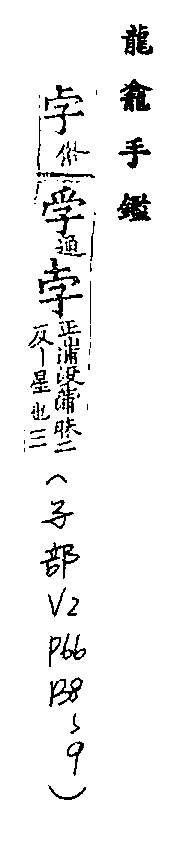 龍龕手鑑
孛俗
通
孛正蒲没蒲昧二
反丨星也
(子部V2P66B8~9)